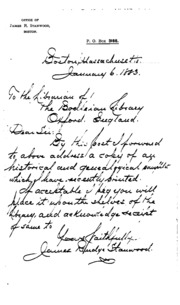 OFFICE OF
JAMES H. STANWOOD,
BOSTON.
P. O. Box
Boston, Massachusetts.
January 6, 1883.
To the Librarian of
The Bodleian Library
Oxford, England.
Dear Sir:
By this post I forward
to above address a copy of
historical and genealogical
which I have recently printed.
If acceptable I pray you will
place it upon the shelves of the
library, and acknowledge receipt
of same to
Yours faithfully,
James Stanwood